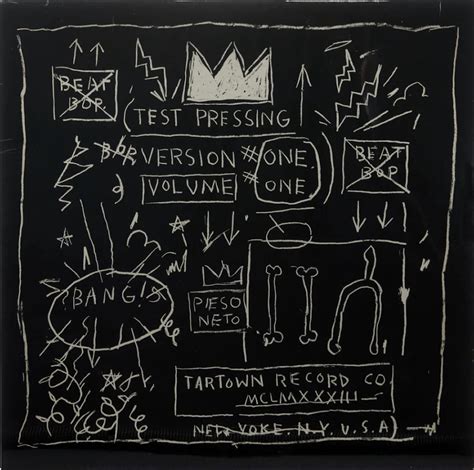 BEAT
BOP
TEST PRESSING
VERSION #ONE.
BEAT
BOP
VOLUME #ONE.
!BANG!
PESO
NETO
TARTOWN RECORD CO
MCLMXXXIII
NEW YOKE. N.Y. U.S.A